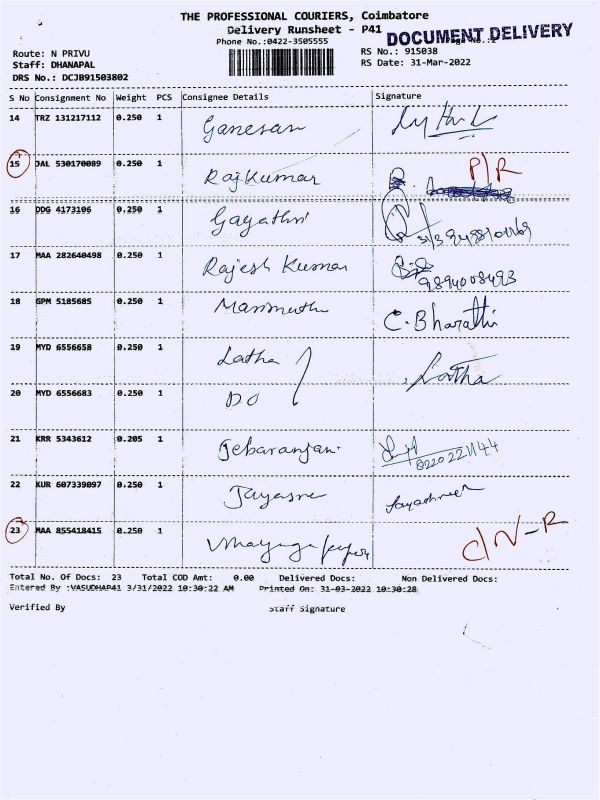 THE PROFESSIONAL COURIERS, Coimbatore
Delivery Runsheet - P41
DOCUMENT DELIVERY
Phone No.:0422-3505555
Page No.:2
Route: N PRIVU
RS No.: 915038
Staff: DHANAPAL
RS Date: 31-Mar-2022
DRS No.: DCJB91503802
S No Consignment No Weight PCS Consignee Details Signature
14 TRZ 131217112 0.250 1 Ganesan
15 JAL 530170089 0.250 1 Rajkumar P/R
16 DDG 4173106 0.250 1 Gayathri
17 MAA 282640498 0.250 1 Rajesh Kumar 9894008493
18 GPM 5185685 0.250 1 Marimuthu C. Bharathi
19 MYD 6556658 0.250 1 Latha Latha
20 MYD 6556683 0.250 1 DO
21 KRR 5343612 0.205 1 Jebaranjani 8220221144
22 KUR 607339097 0.250 1 Jayasre Jayashree
23 MAA 855418415 0.250 1 C/N-R
Total No. Of Docs: 23 Total COD Amt: 0.00 Delivered Docs: Non Delivered Docs:
Entered By :VASUDHAP41 3/31/2022 10:30:22 AM Printed On: 31-03-2022 10:30:28
Verified By Staff Signature